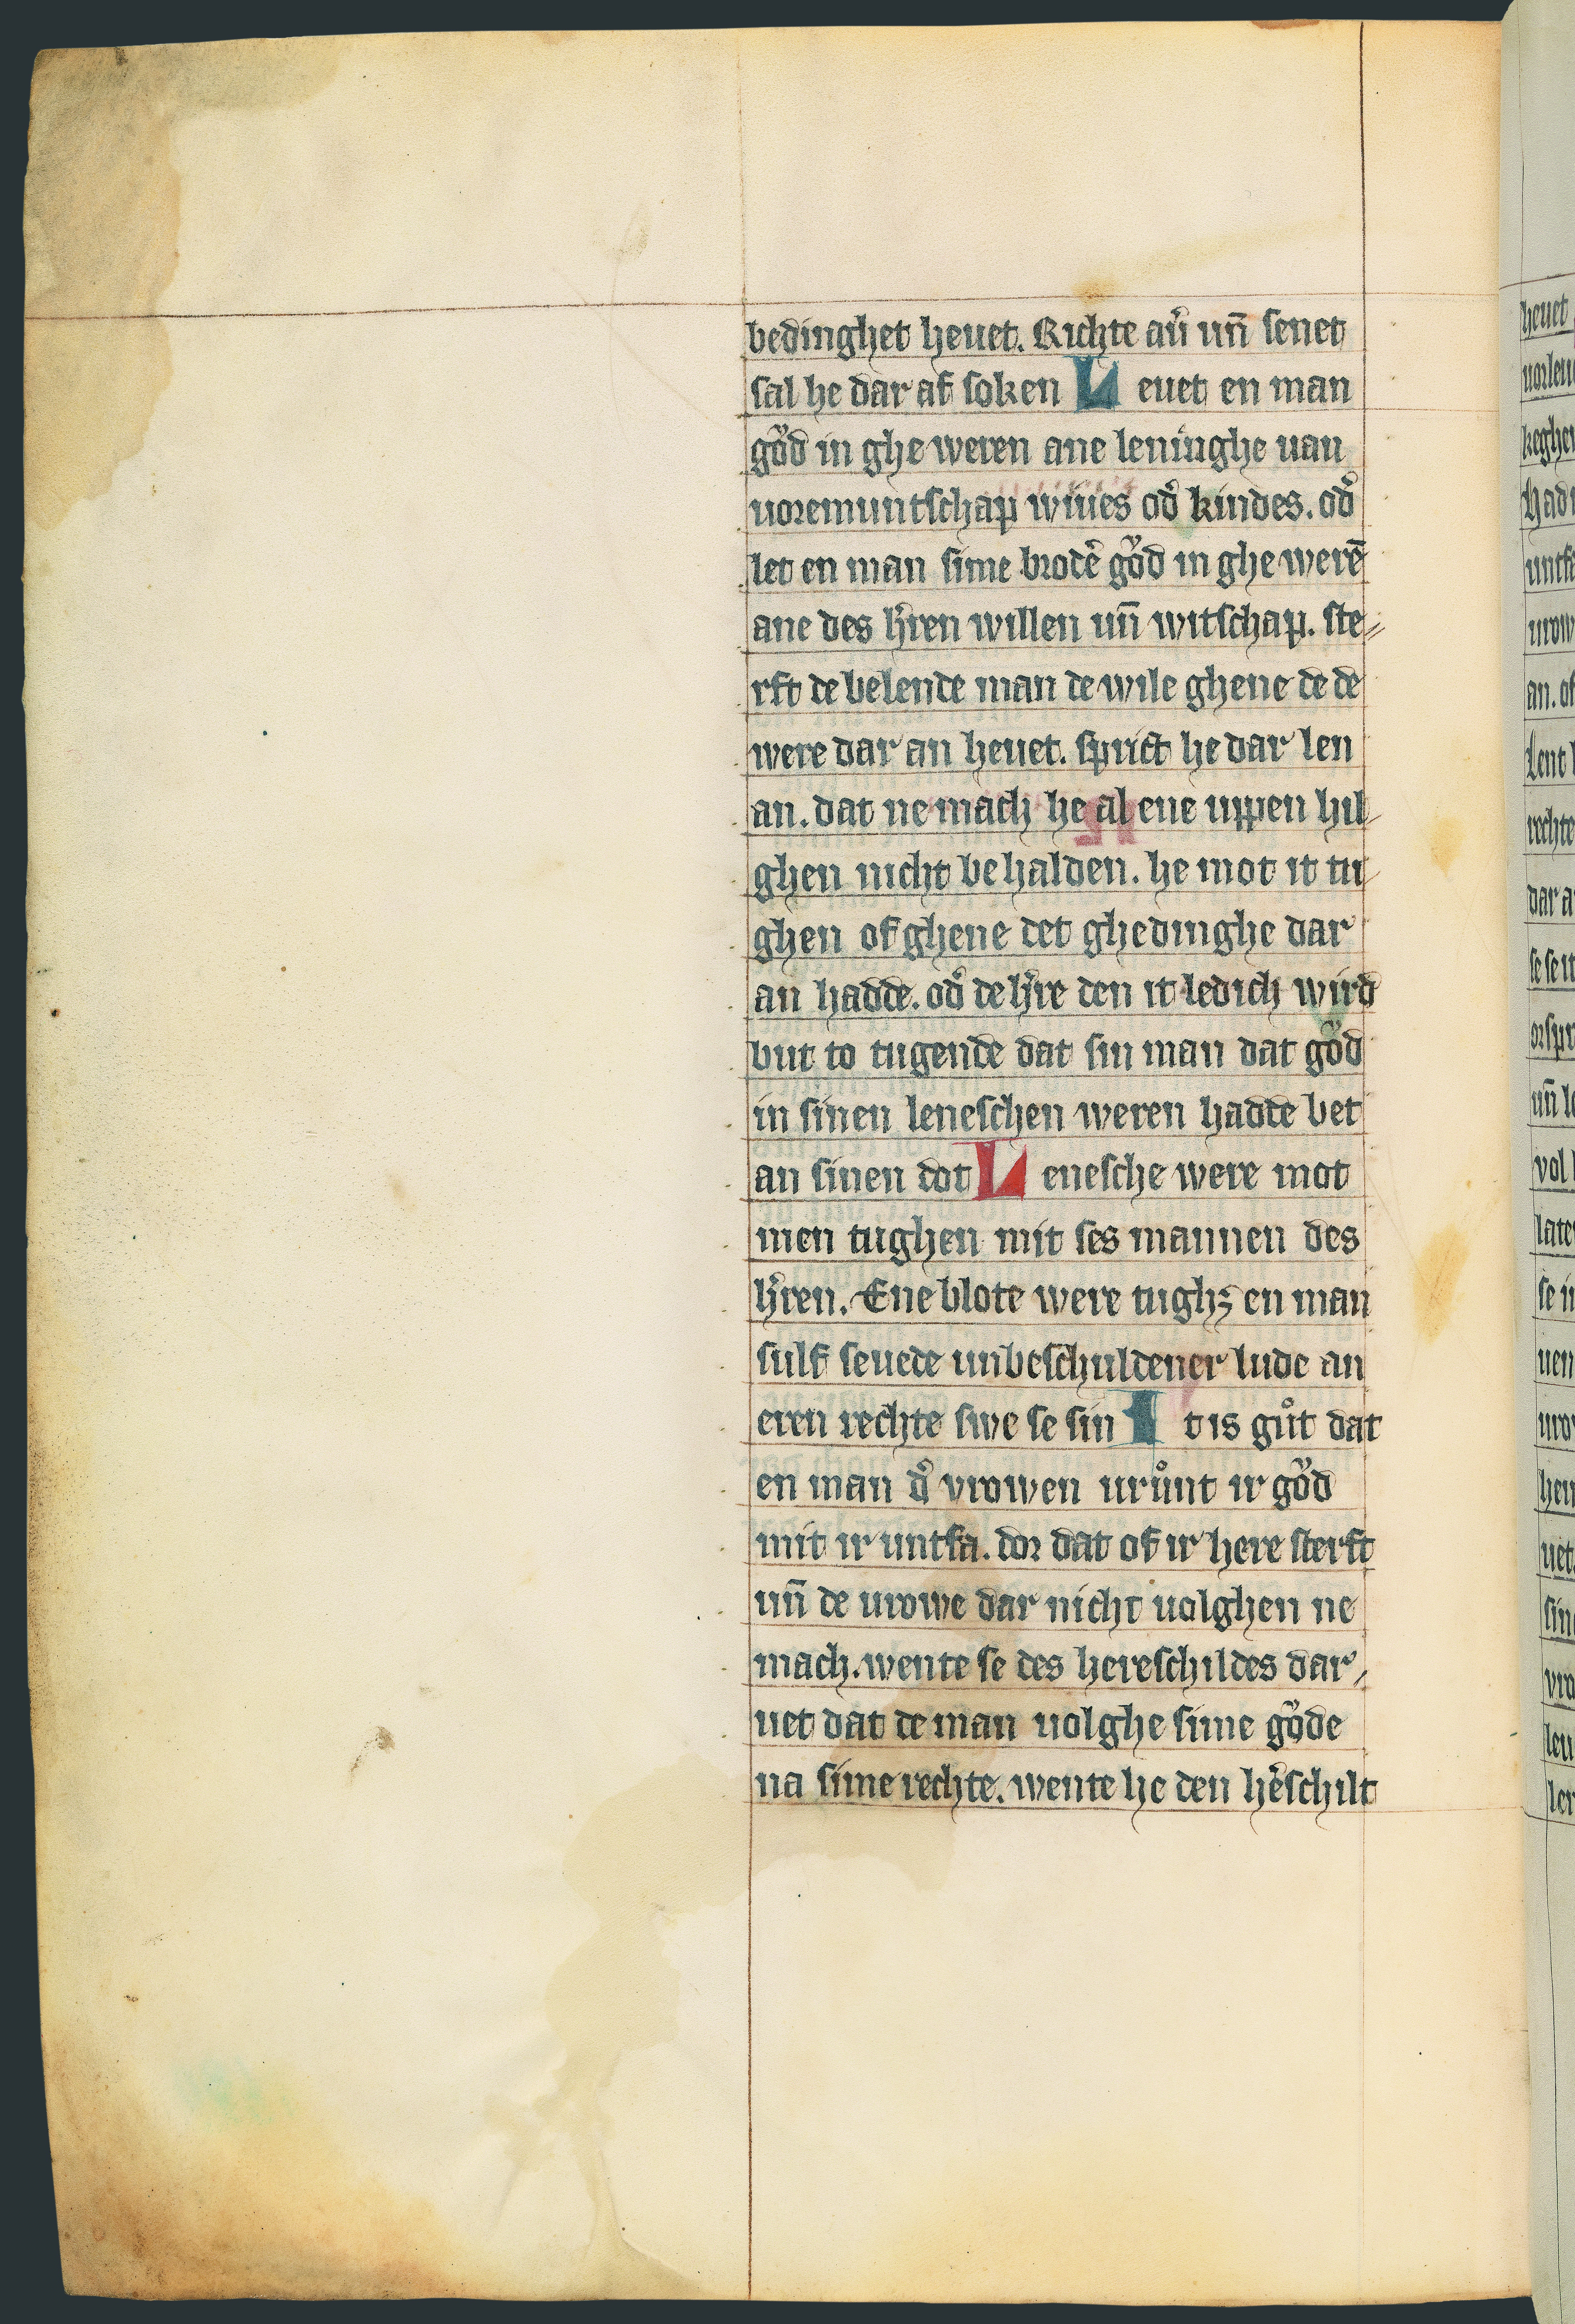 bedinghet heuet. Richte au̾ un̄ senet
sal he dar af soken Leuet en man
gŏ́d in ghe weren ane leninghe uan
uoremuntschap wiues od̾ kindes. od̾
let en man sime brode̾ gŏ́d in ghe were̅
ane des h̾ren willen un̄ witschap. ste-
rft de belende man de wile ghene de de
were dar an heuet. sprict he dar len
an. dat ne mach he al ene uppen hil-
ghen nicht be halden. he mot it tu-
ghen of ghene det ghedinghe dar
an hadde. od̾ de h̾re den it ledich wird
but to tugende dat sin man dat gŏ́d
in sinen leneschen weren hadde bet
an sinen dot Lenesche were mot
men tughen mit ses mannen des
h̾ren. Ene blote were tughꝫ en man
sulf seuede unbeschuldener lude an
eren rechte swe se sin It is gůt dat
en man d̾ vrowen urůnt ir gŏ́d
mit ir untfa. dor dat of ir here sterft
un̄ de urowe dar nicht uolghen ne
mach. wente se des hereschildes dar-
uet dat de man uolghe sime gŏ́de
na sime rechte. wente he den he̾schilt